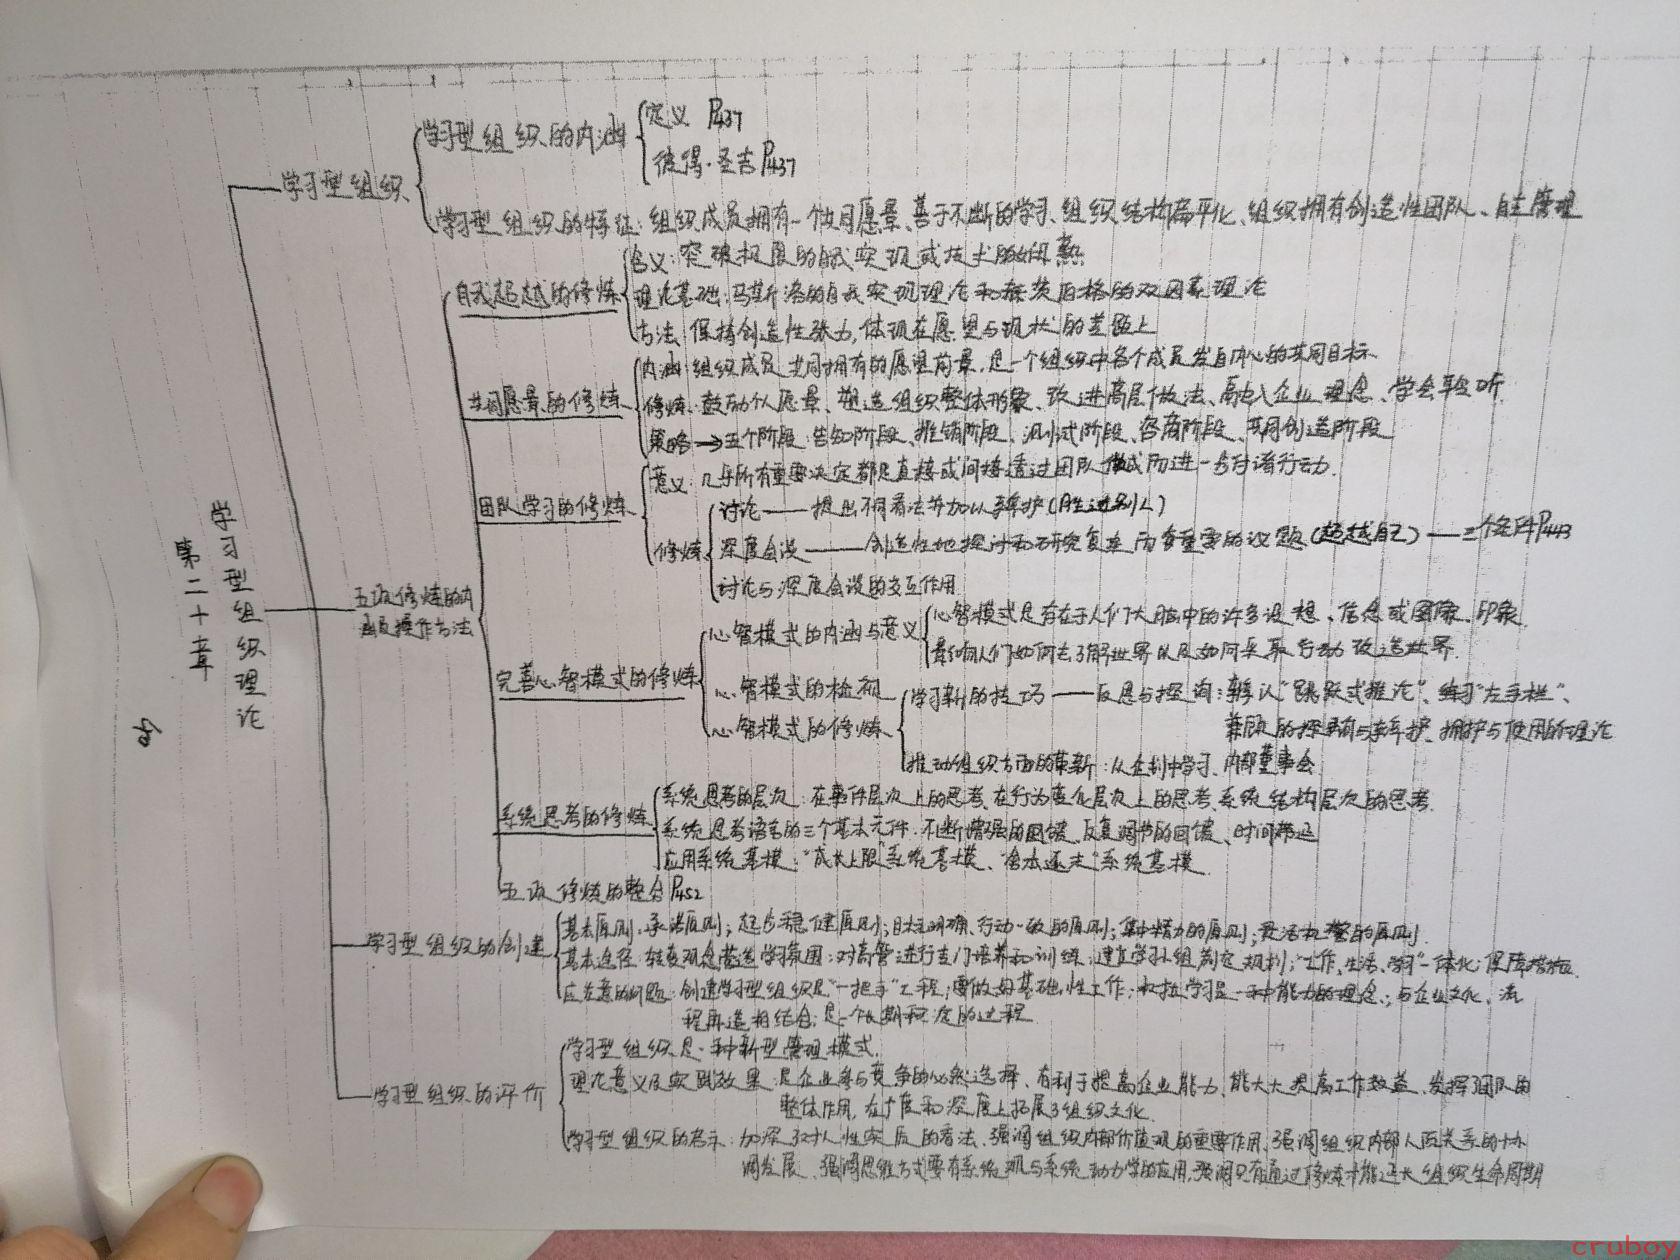 第二十章
学习型组织理论
学习型组织
学习型组织的内涵
定义 P437
彼得·圣吉 P437
学习型组织的特征：组织成员拥有一个共同愿景、善于不断的学习、组织结构扁平化、组织拥有创造性团队、自主管理
五项修炼的内涵及操作方法
自我超越的修炼
含义：突破极限的自我实现或技术的娴熟
理论基础：马斯洛的自我实现理论和赫茨伯格的双因素理论
方法：保持创造性张力，体现在愿望与现状的差距上
共同愿景的修炼
内涵：组织成员共同拥有的愿望前景，是一个组织中各个成员发自内心的共同目标
修炼：鼓励个人愿景、塑造组织整体形象、改进高层做法、融入企业理念、学会聆听
策略→五个阶段：告知阶段、推销阶段、测试阶段、咨商阶段、共同创造阶段
团队学习的修炼
意义：几乎所有重要决定都是直接或间接透过团队做成而进一步付诸行动.
修炼
讨论——提出不同看法并加以辩护(胜过别人)
深度会谈——创造性地探讨和研究复杂而重要的议题(超越自己)——三个条件P443
讨论与深度会谈的交互作用
完善心智模式的修炼
心智模式的内涵与意义
心智模式是存在于人们大脑中的许多设想、信念或图像、印象.
影响人们如何去了解世界以及如何采取行动改造世界.
心智模式的检视
心智模式的修炼
学习新的技巧——反思与探询：辨认“跳跃式推论”、练习“左手栏”、
兼顾的探询与辩护、拥护与使用的理论
推动组织方面的革新：从企划中学习、内部董事会
系统思考的修炼
系统思考的层次：在事件层次上的思考、在行为变化层次上的思考、系统结构层次的思考.
系统思考语言的三个基本元件：不断增强的回馈、反复调节的回馈、时间滞延
应用系统基模：“成长上限”系统基模、“舍本逐末”系统基模.
五项修炼的整合P452
学习型组织的创建
基本原则：承诺原则；起步稳健原则；目标明确、行动一致的原则；集中精力的原则；灵活机警的原则.
基本途径：转变观念营造学习氛围；对高管进行专门培养和训练；建立学习小组制定规划；“工作、生活、学习”一体化；保障措施.
应注意的问题：创建学习型组织是“一把手”工程；要做好基础性工作；树立学习是一种能力的理念；与企业文化、流
程再造相结合；是一个长期积淀的过程.
学习型组织的评价
学习型组织是一种新型管理模式.
理论意义及实践效果：是企业参与竞争的必然选择、有利于提高企业能力、能大大提高工作效益、发挥了团队的
整体作用、在广度和深度上拓展了组织文化.
学习型组织的启示：加深了对人性实质的看法、强调组织内部价值观的重要作用、强调组织内部人际关系的协
调发展、强调思维方式要有系统观与系统动力学的应用、强调只有通过修炼才能延长组织生命周期
cruboy